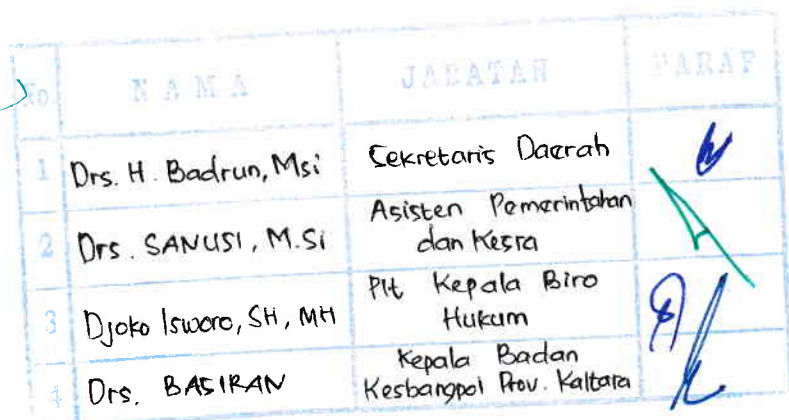 No. NAMA JABATAN PARAF
1 Drs. H. Badrun, Msi Sekretaris Daerah
2 Drs. SANUSI, M.Si Asisten Pemerintahan
dan Kesra
3 Djoko Isworo, SH, MH Plt Kepala Biro
Hukum
4 Drs. BASIRAN Kepala Badan
Kesbangpol Prov. Kaltara